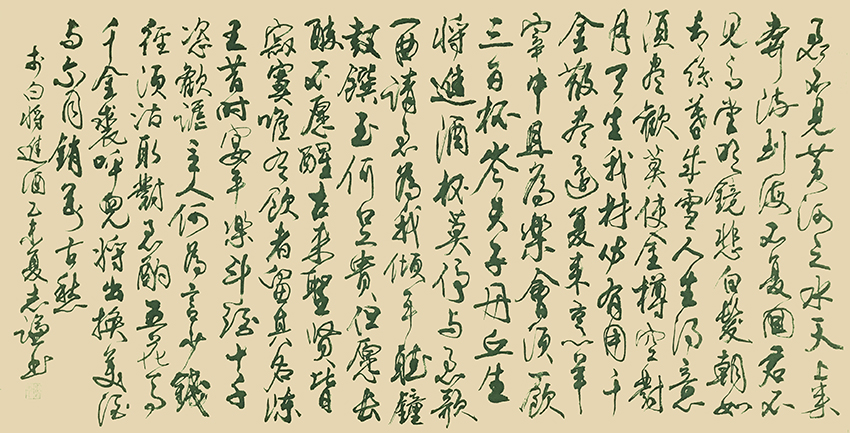 君不見黃河之水天上來
奔流到海不復回君不
見高堂明鏡悲白髮朝如
青絲暮成雪人生得意
須盡歡莫使金樽空對
月天生我材必有用千
金散盡還復來烹羊
宰牛且為樂會須一飲
三百杯岑夫子丹丘生
將進酒杯莫停與君歌
一曲請君為我傾耳聽鐘
鼓饌玉何足貴但願長
醉不願醒古來聖賢皆
寂寞唯有飲者留其名陳
王昔時宴平樂斗酒十千
恣歡謔主人何為言少錢
徑須沽取對君酌五花馬
千金裘呼兒將出換美酒
與爾同銷萬古愁
李白將進酒乙未夏志謙書